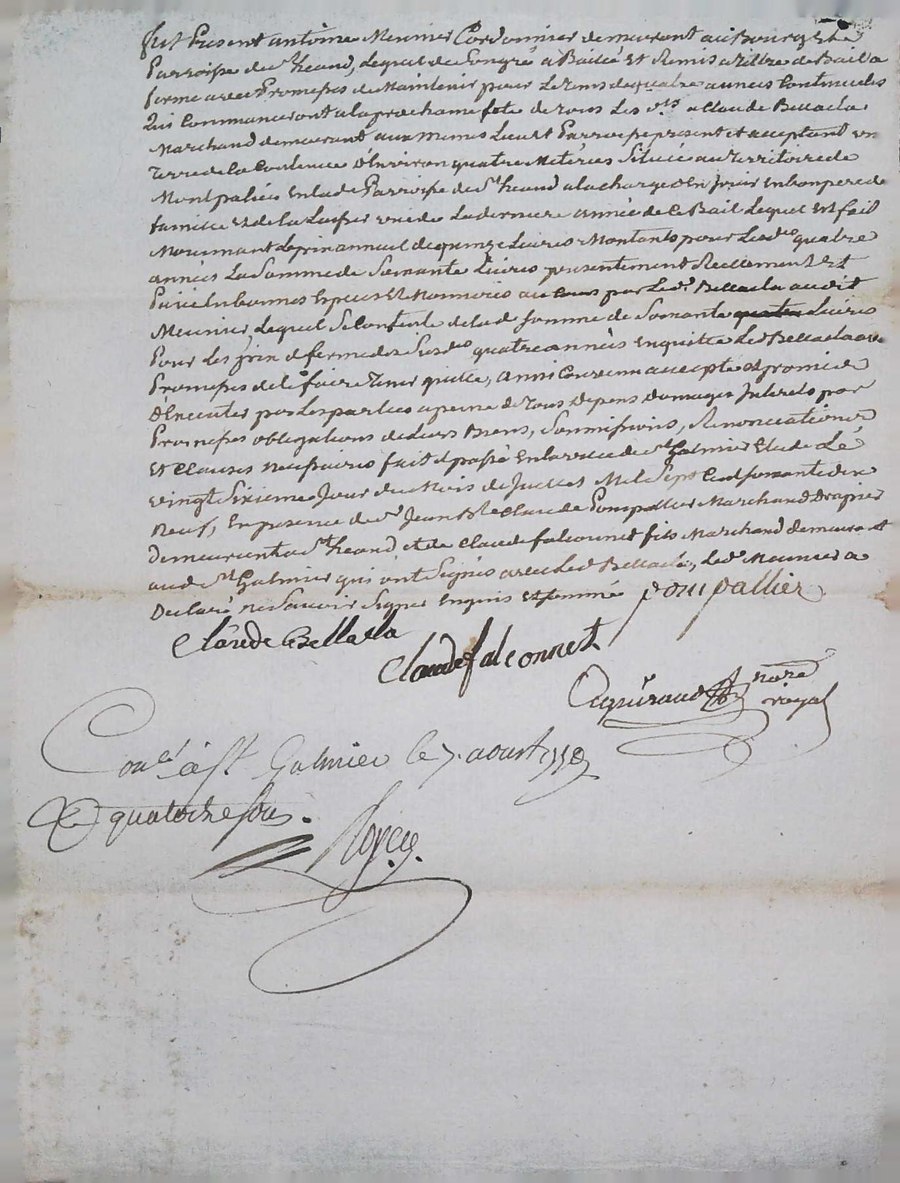 fut Present antoine Meunier Cordonnier demeurant au Bourg Et
Parroisse de st heand, Lequel de son gré a Baillé Et Remis a tiltre de Bail a
ferme avec Promesses de Maintenir pour Le tems de quatre années Continuelles
Qui Commanceront a la prochaine fete de tous Les sts a Claude Bellacla
Marchand demeurant aux memes Lieu et Parroisse present et acceptant un
Terre de la Contenue d'Environ quatre Meterées Situéé au Territoire de
Montpaliés En lad Parroisse de st heand a la charge d'En Jouir En bon pere de
famille Et de La Laisser de La derniere année de Ce Bail Lequel Est fait
Moyennant Le prix annuel de quinze Livres Montants pour Lesd quatre
années La Somme de Soixante Livres presentement Reellement Et
Payé En bonnes Especes Et Monnoies au Cours par Led Bellacla audit
Meunier, Lequel Se Contente de lad Somme de Soixante Livres
Pour Les prix de ferme des quatre années En quitte Led Bellacla avec
Promesses de Le faire Tenir quitte, ainsi Convenu accepté et promis
d'Executer par Les parties a peine de Tous depens domages Interets par
Promesses obligations de Leurs Biens, Soumissions, Renonciations
Et Clauses necessaires fait Et passé En la ville de st Galmier Etude Le
vingt Sixieme Jour du Mois de Juillet Mil Sept Cent soixante dix
Neuf, En presence de sr Jean Claude Pompallier Marchand Drapier
demeurant a st heand et de Claude falconnet fils Marchand demeurant
aud st Galmier qui ont Signés avec Led Bellacla, Led Meunier a
Declaré ne Savoir Signer Enquis Et sommé pompallier
Claude Bellacla
Claude falconnet
nore
royal
Conlé à st Galmier le 7. aoust
quatorze sous.